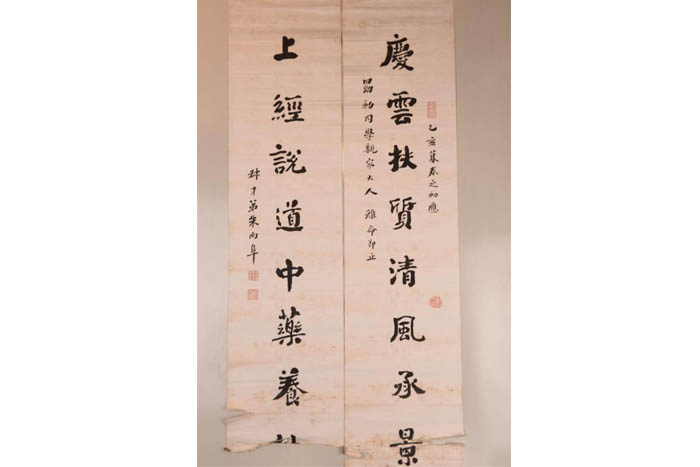 慶雲扶質清風承景
乙亥暮春之初應
勗初同學親家大人 雅令即正
上經說道中藥養
棘才弟朱向阜